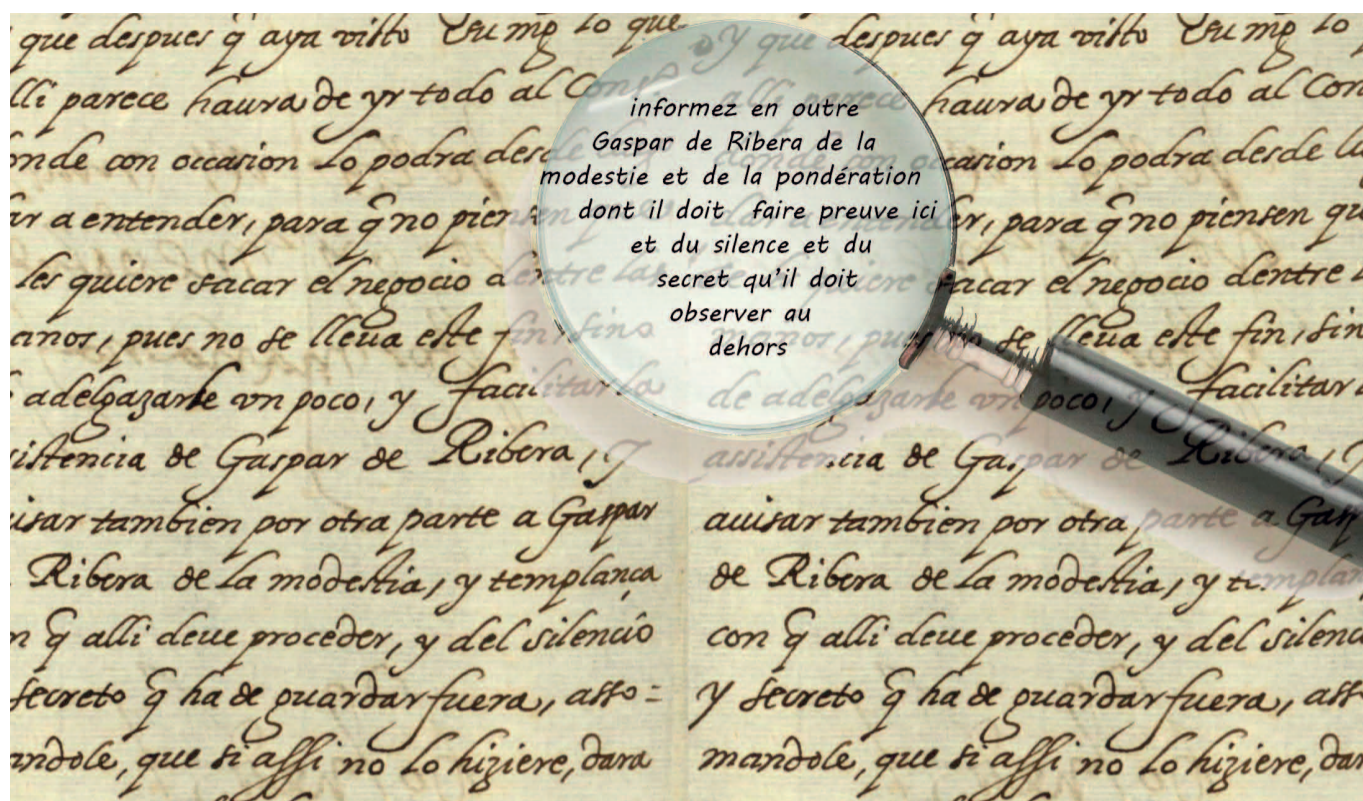 que despues q̃ aya visto Su mg lo que
lli parece haura de yr todo al Cons
onde con occasion lo podra desde
ar a entender, para q̃ no piensen
les quiere sacar el negocio dentre las
anos, pues no se lleua este fin, sino
adelgazarle vn poco, y facilitar la
istencia de Gaspar de Ribera, y
uisar tambien por otra parte a Gaspar
Ribera de la modestia, y templança
n q̃ alli deue proceder, y del silencio
secreto q̃ ha de guardar fuera, asso=
andole, que si assi no lo hiziere, dara
informez en outre
Gaspar de Ribera de la
modestie et de la pondération
dont il doit faire preuve ici
et du silence et du
secret qu'il doit
observer au
dehors
y que despues q̃ aya visto Su mg lo
alli parece haura de yr todo al Con
donde con occasion lo podra desde la
dar a entender, para q̃ no piensen qu
les quiere sacar el negocio dentre
manos, pues no se lleua este fin, sin
de adelgazarle vn poco, y facilitar
assistencia de Gaspar de Ribera, y
auisar tambien por otra parte a Gasp
de Ribera de la modestia, y templan
con q̃ alli deue proceder, y del silenc
y secreto q̃ ha de guardar fuera, ass
mandole, que si assi no lo hiziere, dar